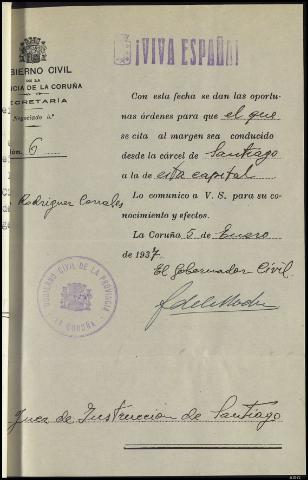 ¡VIVA ESPAÑA!
BIERNO CIVIL
DE LA
NCIA DE LA CORUÑA
ECRETARÍA
Negociado n.º
úm. 6
Rodríguez Corrales
Con esta fecha se dan las oportu-
nas órdenes para que el que
se cita al margen sea conducido
desde la cárcel de Santiago
a la de esta capital
Lo comunico a V. S. para su co-
nocimiento y efectos.
La Coruña 5 de Enero
de 1937.
El Gobernador Civil.
GOBIERNO CIVIL DE LA PROVINCIA
LA CORUÑA
Juez de Instrucción de Santiago